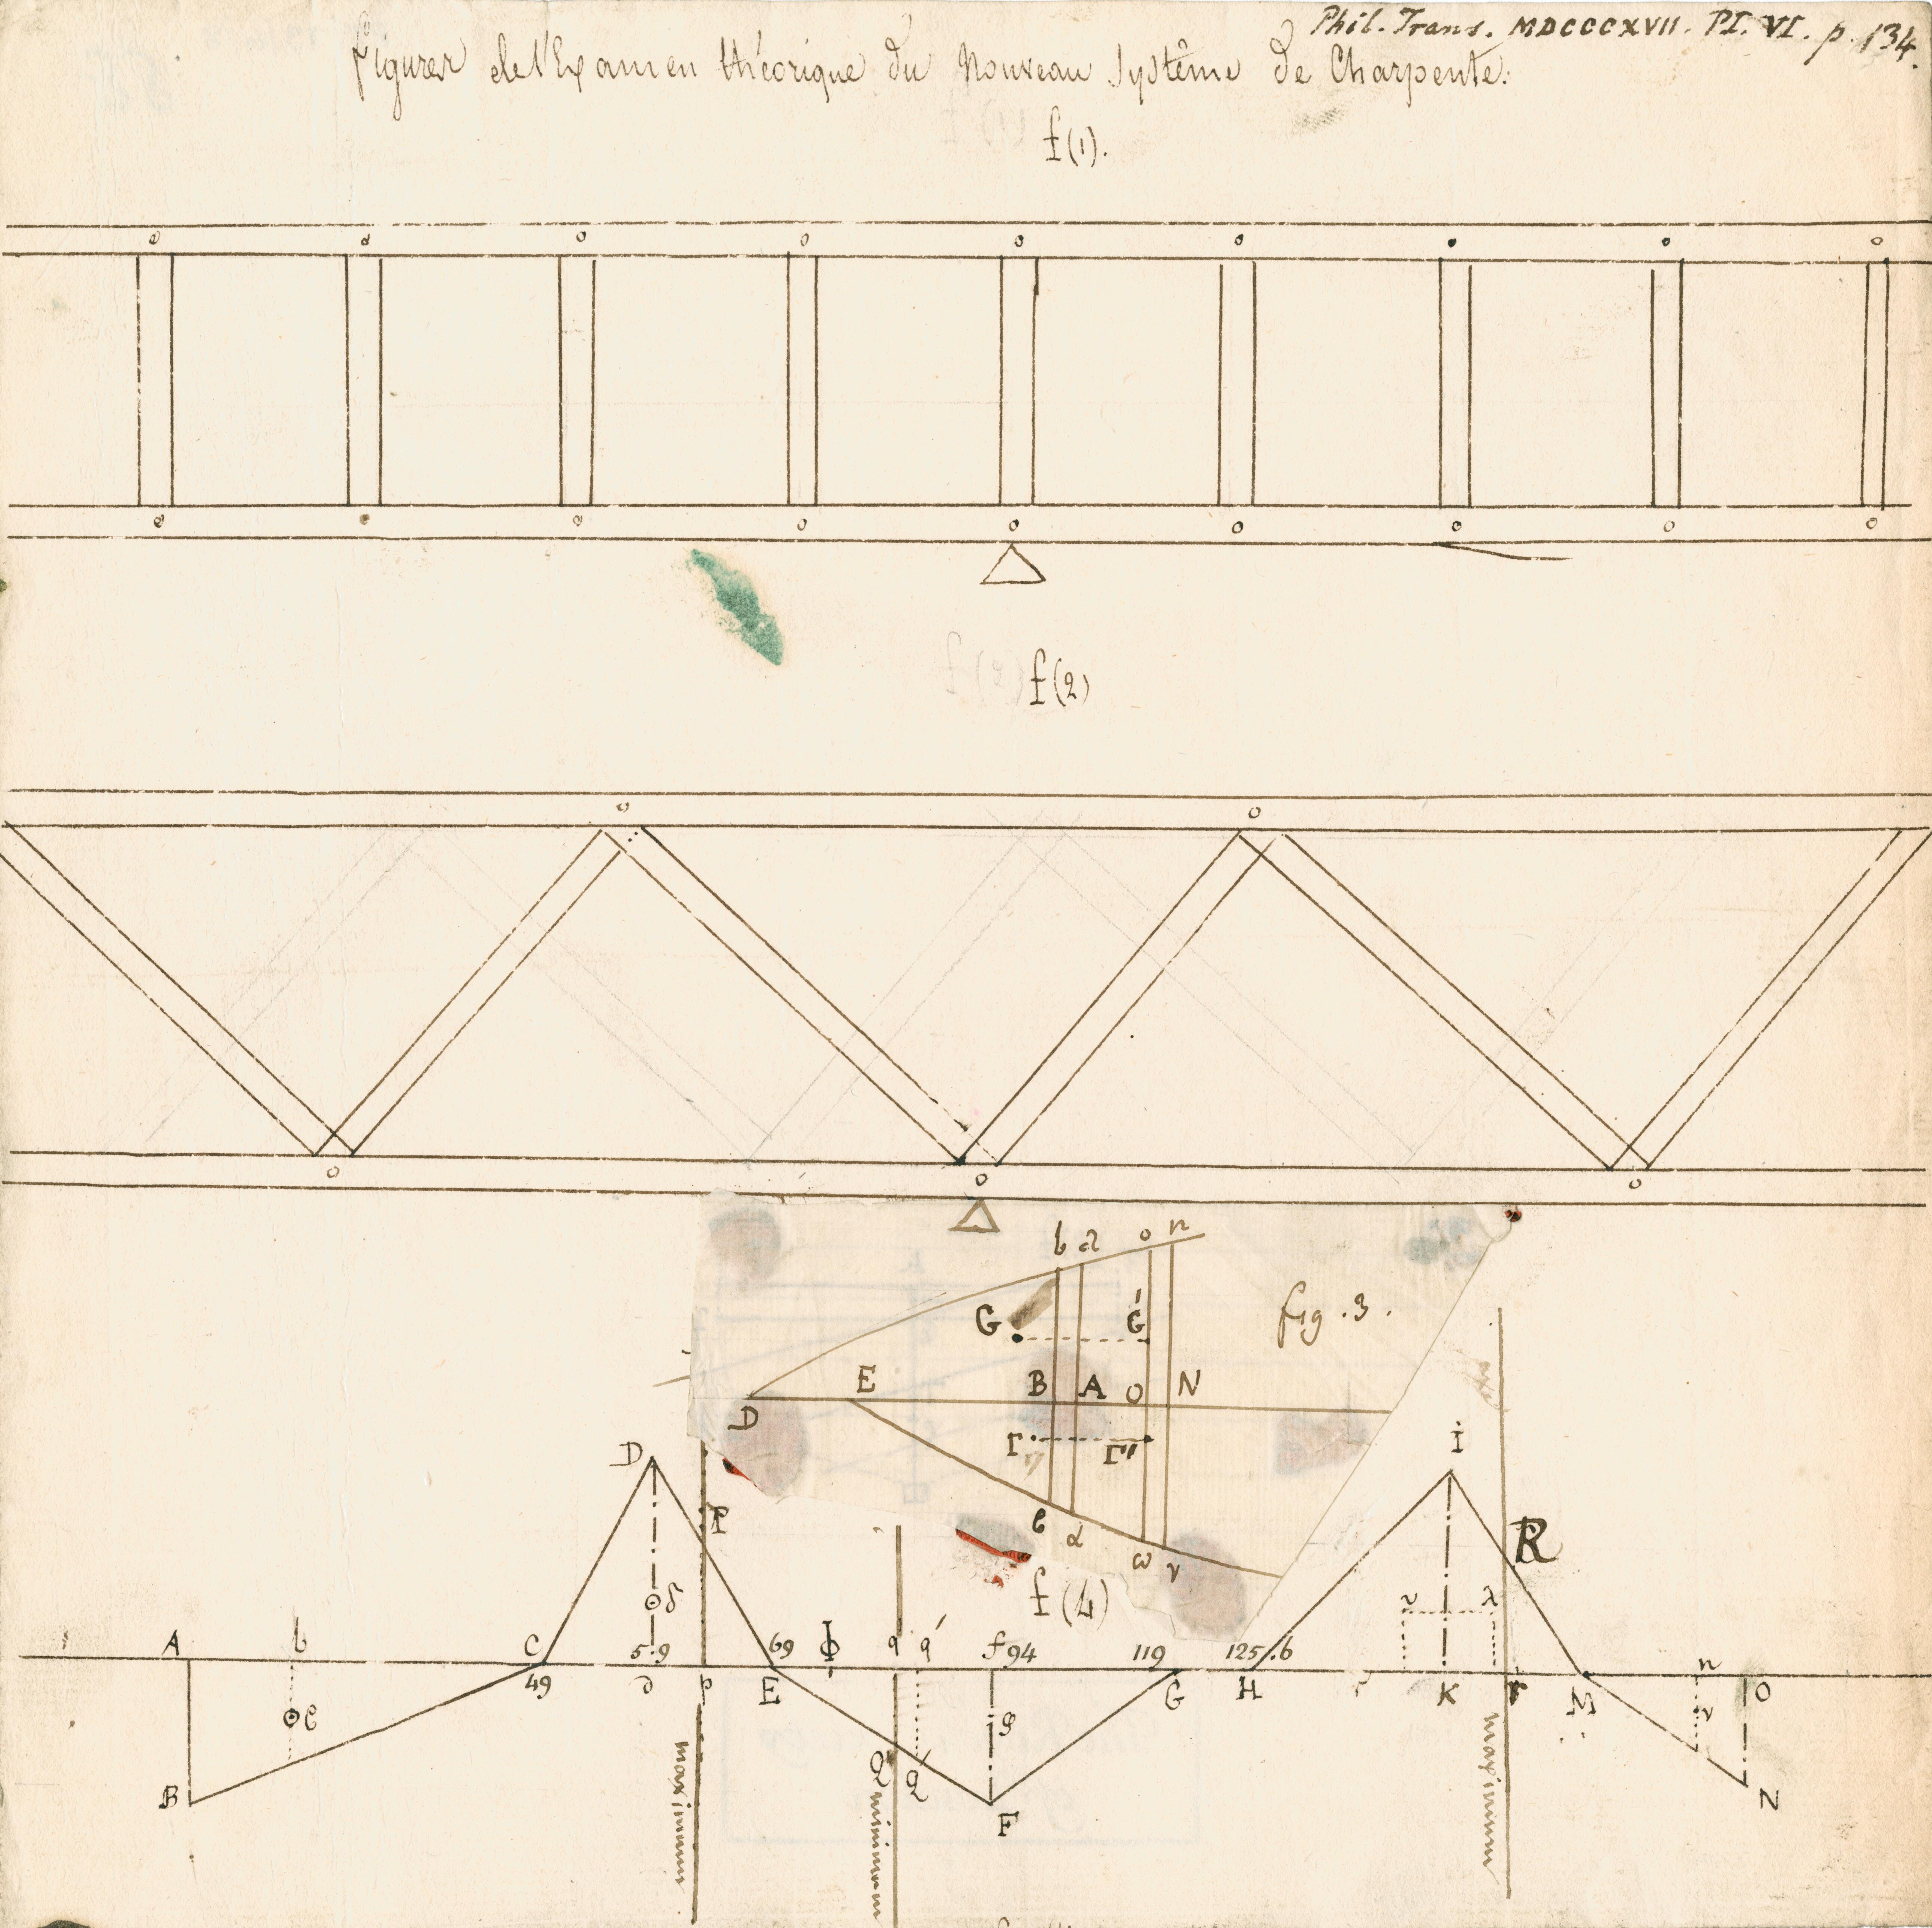 Phil. Trans. MDCCCXVII. Pl. VI. p. 134.
figures de l'Examen théorique du Nouveau Système de Charpente.
f(1).
f(2)
b a o n
G G' fig. 3.
E B A O N
D
Γ Γ'
ϐ α ω ν
D P i
δ R
f(4)
ν λ
A b C 5.9 69 Φ q q' f 94 119 125.6 n
49 d p E G H K r M O
ϐ φ ν
B Q Q F N
maximum minimum maximum